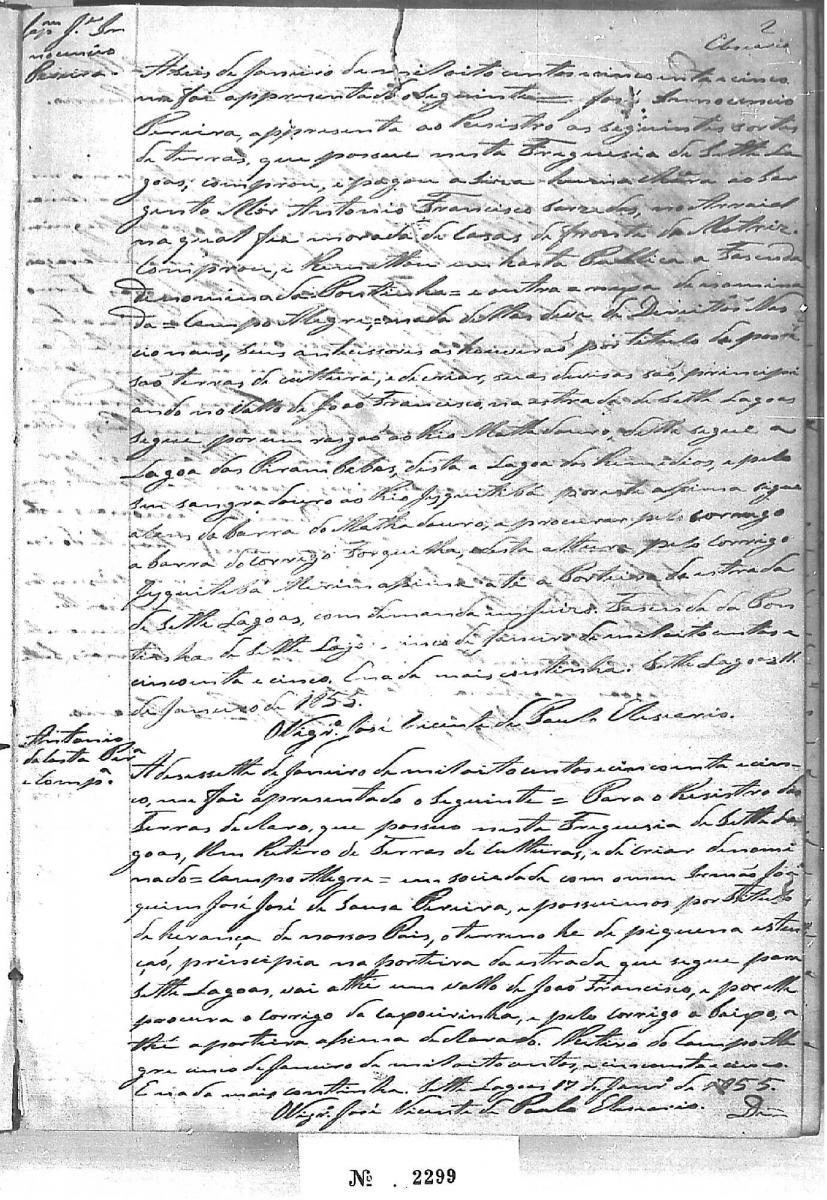 2
Eleuzario
Cap.m J.e In
nocencio
Pereira.
A seis de Janeiro de mil oito centos e cincoenta e cinco
me foi appresentado o seguinte = José Innocencio
Pereira, appresenta ao Resistro as seguintes sortes
de terras, que possue nesta Freguesia de Sette La
goas, comprou, e pagou a Siza huma ao Sar
gento Mór Antonio Francisco no Arraial
na qual fez morada de Casas, de fronte da Matriz.
Comprou, e Rematou em hasta Publica a Fasenda
denominada Pontinha = e outra = mapa denomina
da = Campo Alegre, = nada dellas deve de Direitos Na
cionaes, seus antecessores as houverão por titulo de posse
são terras de cultura, e de criar, suas devisas são, principi
ando no Vallo de João Francisco, na estrada de Sette Lagoas
segue por um rasgão ao Rio Mathadouro, delle segue a
Lagoa das Pirambebas, desta a Lagoa dos Remedios, e pelo
seu sangradouro ao Rio Jyquitibá por este assima sigue
alem da barra do Mathadouro, a procurar pelo corrigo
a barra do corrigo Forquilha, desta altura pelo Corrigo
Jyquitibá Merim assima até a Porteira da estrada
de Sette Lagoas, com demanda em juizo. Fasenda da Pon
tinha de Sette Lagoas cinco de Janeiro de mil oito centos e
cincoenta e cinco. E nada mais continha. Sette Lagoas 11
de Janeiro de 1855.
O Vigr.o José Vicente de Paula Eleuzario.
Antonio
da Costa Per.a
e Comp.a
A desessette de Janeiro de mil oito centos e cincoenta e cin
co, me foi apresentado o seguinte = Para o Resistro das
Terras declaro, que possuo nesta Freguesia de Sette La
goas, Um Retiro de Terras de Culturas, e de criar denomi
nado = Campo Alegre = em sociedade com o meu Irmão Joa
quim José José de Sousa Pereira, e possuimos por Titulo
de herança de nossos Pais, o terreno he de piquena esten
ção, principia na porteira da estrada que segue para
Sette Lagoas, vai athe um vallo de João Francisco, e por elle
procura o corrigo da capoeirinha, e pelo corrigo a baixo, a
thé a porteira assima declarado. Retiro do Campo Ale
gre cinco de Janeiro de mil oito centos, e cincoenta e cinco.
E nada mais continha. Sette Lagoas 17 de Janr.o de 1855.
O Vigr.o José Vicente de Paula Eleuzario.
No. 2299